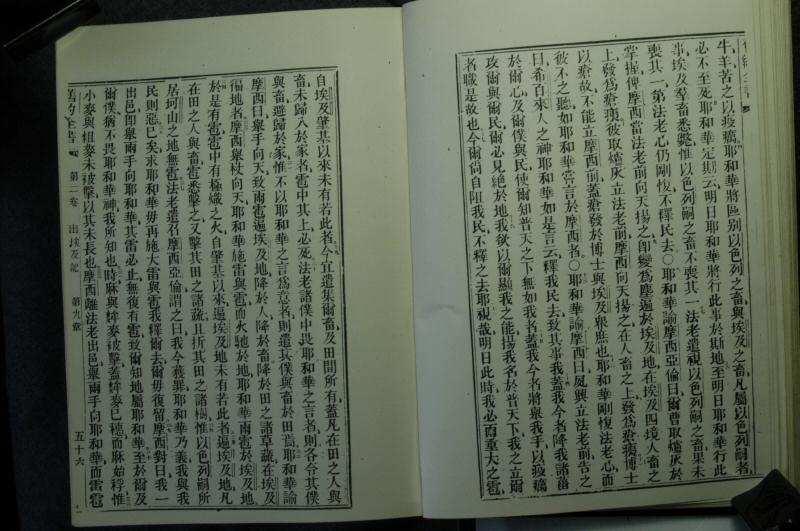 牛羊苦之以疫癘耶和華將區別以色列之畜與埃及之畜凡屬以色列嗣者
必不至死耶和華定期云明日耶和華將行此事於斯地至明日耶和華行此
事埃及羣畜悉斃惟以色列嗣之畜不喪其一法老遣視以色列嗣之畜果未
喪其一第法老心仍剛愎不釋民去〇耶和華諭摩西亞倫曰爾曹取爐灰於
掌握俾摩西當法老前向天揚之卽變爲塵遍於埃及地在埃及四境人畜之
上發爲瘡瘍彼取爐灰立法老前摩西向天揚之在人畜之上發爲瘡瘍博士
以瘡故不能立摩西前蓋瘡發於博士與埃及衆庶也耶和華剛愎法老心而
彼不之聽如耶和華嘗言於摩西者〇耶和華諭摩西曰夙興立法老前告之
曰希百來人之神耶和華如是言云釋我民去致其事我蓋我今者降我諸菑
於爾心及爾僕與民使爾知普天之下無如我者蓋我今者將舉我手以疫癘
攻爾與爾民爾必見絕於地我欲以爾顯我之能揚我名於普天下我之立爾
者職是故也今爾尙自阻我民不釋之去耶視哉明日此時我必雨重大之雹
自埃及肇基以來未有若此者今宜遣集爾畜及田間所有蓋凡在田之人與
畜未歸入於家者雹中其上必死法老諸僕中畏耶和華之言者則各令其僕
與畜避歸於家惟不以耶和華之言爲意者則遺其僕與畜於田焉耶和華諭
摩西曰舉手向天致雨雹遍埃及地降於人降於畜降於田之諸草蔬在埃及
地者摩西舉杖向天耶和華施雷與雹而火馳於地耶和華雨雹於埃及地
於是有雹雹中有極熾之火自肇基以來遍埃及地未有若此者遍埃及地凡
在田之人與畜雹悉擊之又擊其田之諸蔬且折其田之諸樹惟以色列嗣所
居坷山之地無雹法老遣召摩西亞倫謂之曰我今獲罪耶和華乃義我與我
民則惡已矣求耶和華毋再施大雷與雹我釋爾去爾毋復留摩西對曰我一
出邑卽舉兩手向耶和華其雷必止無復有雹致爾知地屬耶和華至於爾及
爾僕猶不畏耶和華神我所知也時麻與麰麥被擊蓋麰麥已穗而麻始稃惟
小麥與粗麥未被擊以其未長也摩西離法老出邑舉兩手向耶和華而雷雹
舊約全書 第二卷 出埃及記 第九章 五十六